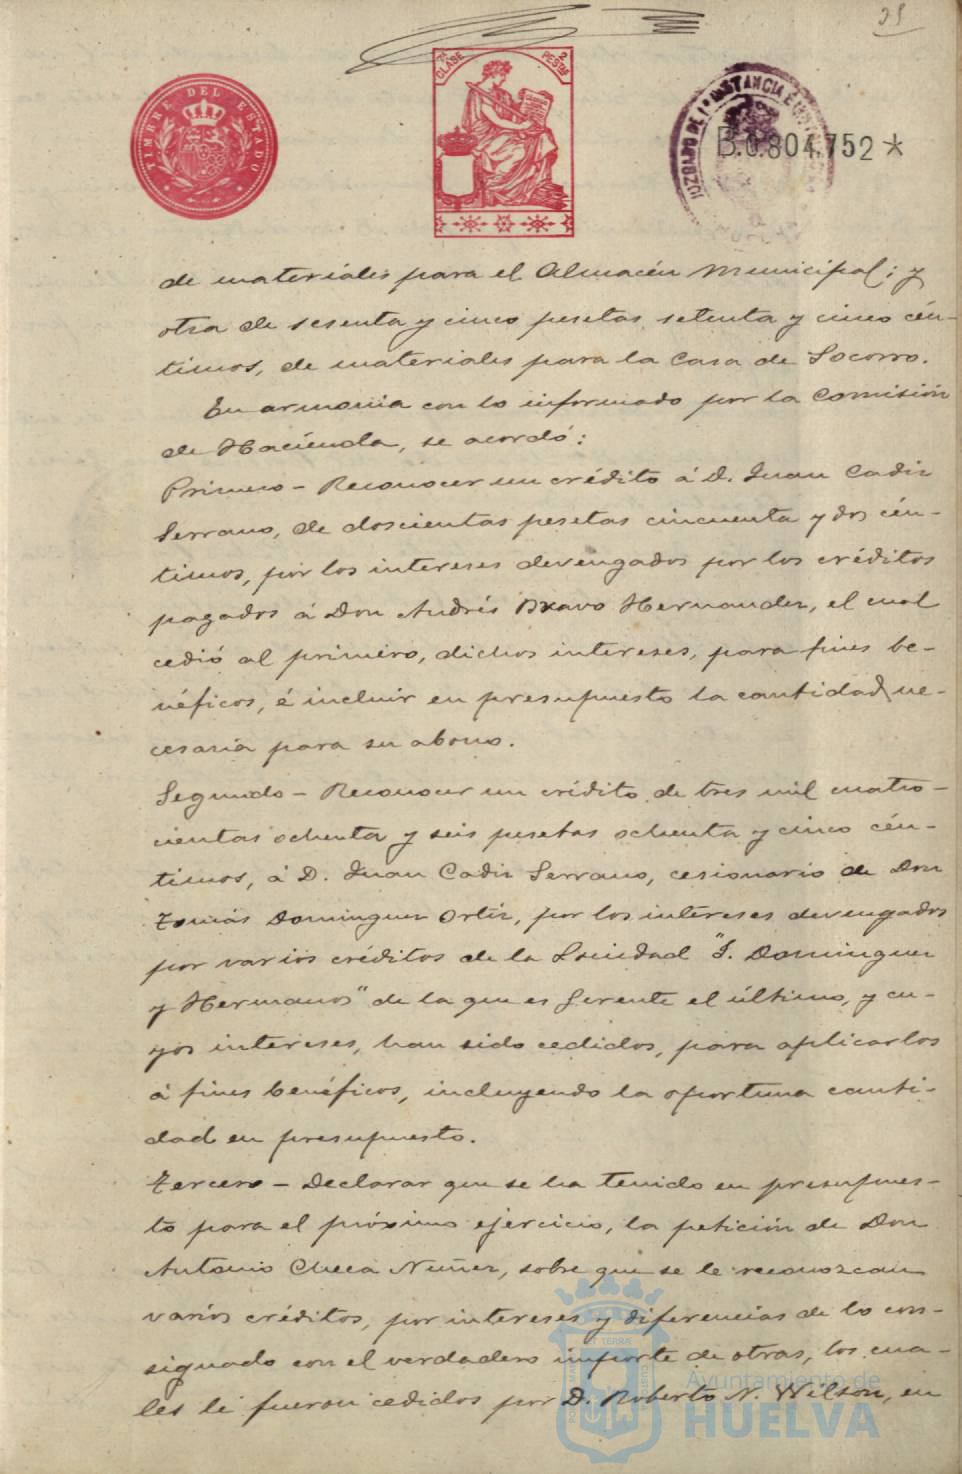 25
TIMBRE DEL ESTADO
7ª CLASE 2 PESTAS
JUZGADO DE 1ª INSTANCIA É
B.0.804.752 *
de materiales para el Almacén Municipal; y
otra de sesenta y cinco pesetas setenta y cinco cén-
timos, de materiales para la Casa de Socorro.
En armonia con lo informado por la Comisión
de Hacienda, se acordó:
Primero - Reconocer un crédito á D. Juan Cadiz
Serrano, de doscientas pesetas cincuenta y dos cén-
timos, por los intereses devengados por los créditos
pagados á Don Andrés Bravo Hernandez, el cual
cedió al primero, dichos intereses, para fines be-
néficos, é incluir en presupuesto la cantidad ne-
cesaria para su abono.
Segundo - Reconocer un crédito de tres mil cuatro-
cientas ochenta y seis pesetas ochenta y cinco cén-
timos, á D. Juan Cadiz Serrano, cesionario de Don
Tomás Dominguez Ortiz, por los intereses devengados
por varios créditos de la Sociedad "T. Dominguez
y Hermanos" de la que es Gerente el último, y cu-
yos intereses, han sido cedidos, para aplicarlos
á fines benéficos, incluyendo la oportuna canti-
dad en presupuesto.
Tercero - Declarar que se ha tenido en presupues-
to para el próximo ejercicio, la petición de Don
Antonio Checa Nuñez, sobre que se le reconozcan
varios créditos, por intereses y diferencias de lo con-
signado con el verdadero importe de otras, los cua-
les le fueron cedidos por D. Roberto N. Wilson, en
Ayuntamiento de
HUELVA